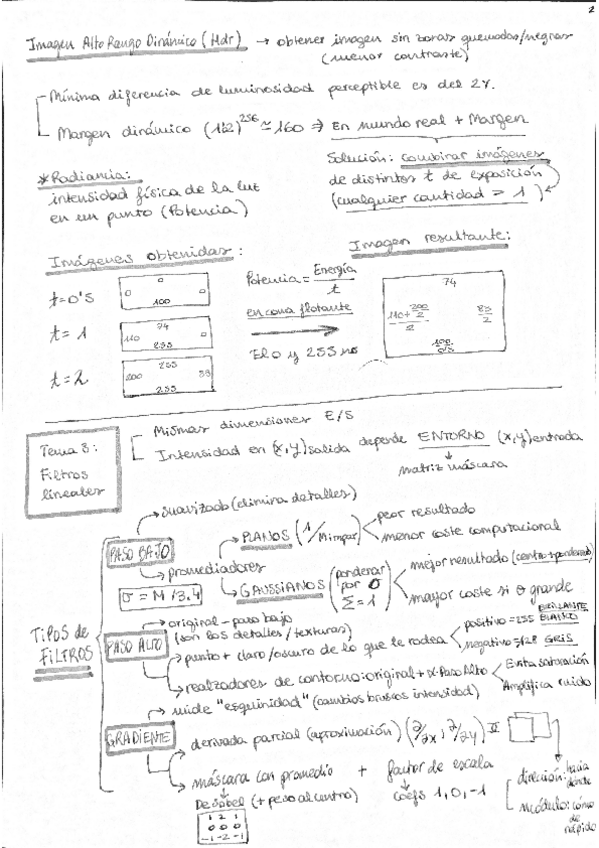 2
Imagen Alto Rango Dinámico (Hdr) → obtener imagen sin zonas quemadas/negras
(menor contraste)
Mínima diferencia de luminosidad perceptible es del 2%.
Margen dinámico (1'02)^256 ≃ 160 ⇒ En mundo real + Margen
Solución: combinar imágenes
de distintos t de exposición
(cualquier cantidad > 1)
*Radiancia:
intensidad física de la luz
en un punto (Potencia)
Imágenes obtenidas:
Imagen resultante:
t=0'5
0
0 0
100
t=1
74
110 0
255
t=2
255
200 83
255
Potencia = Energía / t
en coma flotante
El 0 y 255 no
74
110 + 200/2
2
83/2
100
0'5
Tema 3:
Filtros
lineales
Mismas dimensiones E/S
Intensidad en (x,y) salida depende ENTORNO (x,y) entrada
matriz máscara
TIPOS de
FILTROS
PASO BAJO
→ suavizado (elimina detalles)
→ promediadores
σ = M/3.4
→ PLANOS (1/M impar)
peor resultado
menor coste computacional
→ GAUSSIANOS (ponderar por σ Σ=1)
mejor resultado (centro + ponderado)
mayor coste si σ grande
PASO ALTO
→ original - paso bajo
(son los detalles/texturas)
→ punto + claro/oscuro de lo que le rodea
positivo = 255 BRILLANTE BLANCO
negativo = 128 GRIS
→ realzadores de contorno: original + α·Paso Alto
Evita saturación
Amplifica ruido
GRADIENTE
→ mide "esquinidad" (cambios bruscos intensidad)
→ derivada parcial (aproximación) (∂/∂x, ∂/∂y)
→ máscara con promedio + factor de escala
De Sobel (+ peso al centro)
coefs 1, 0, -1
1 2 1
0 0 0
-1 -2 -1
dirección: hacia
dónde
módulo: cómo
de
rápido